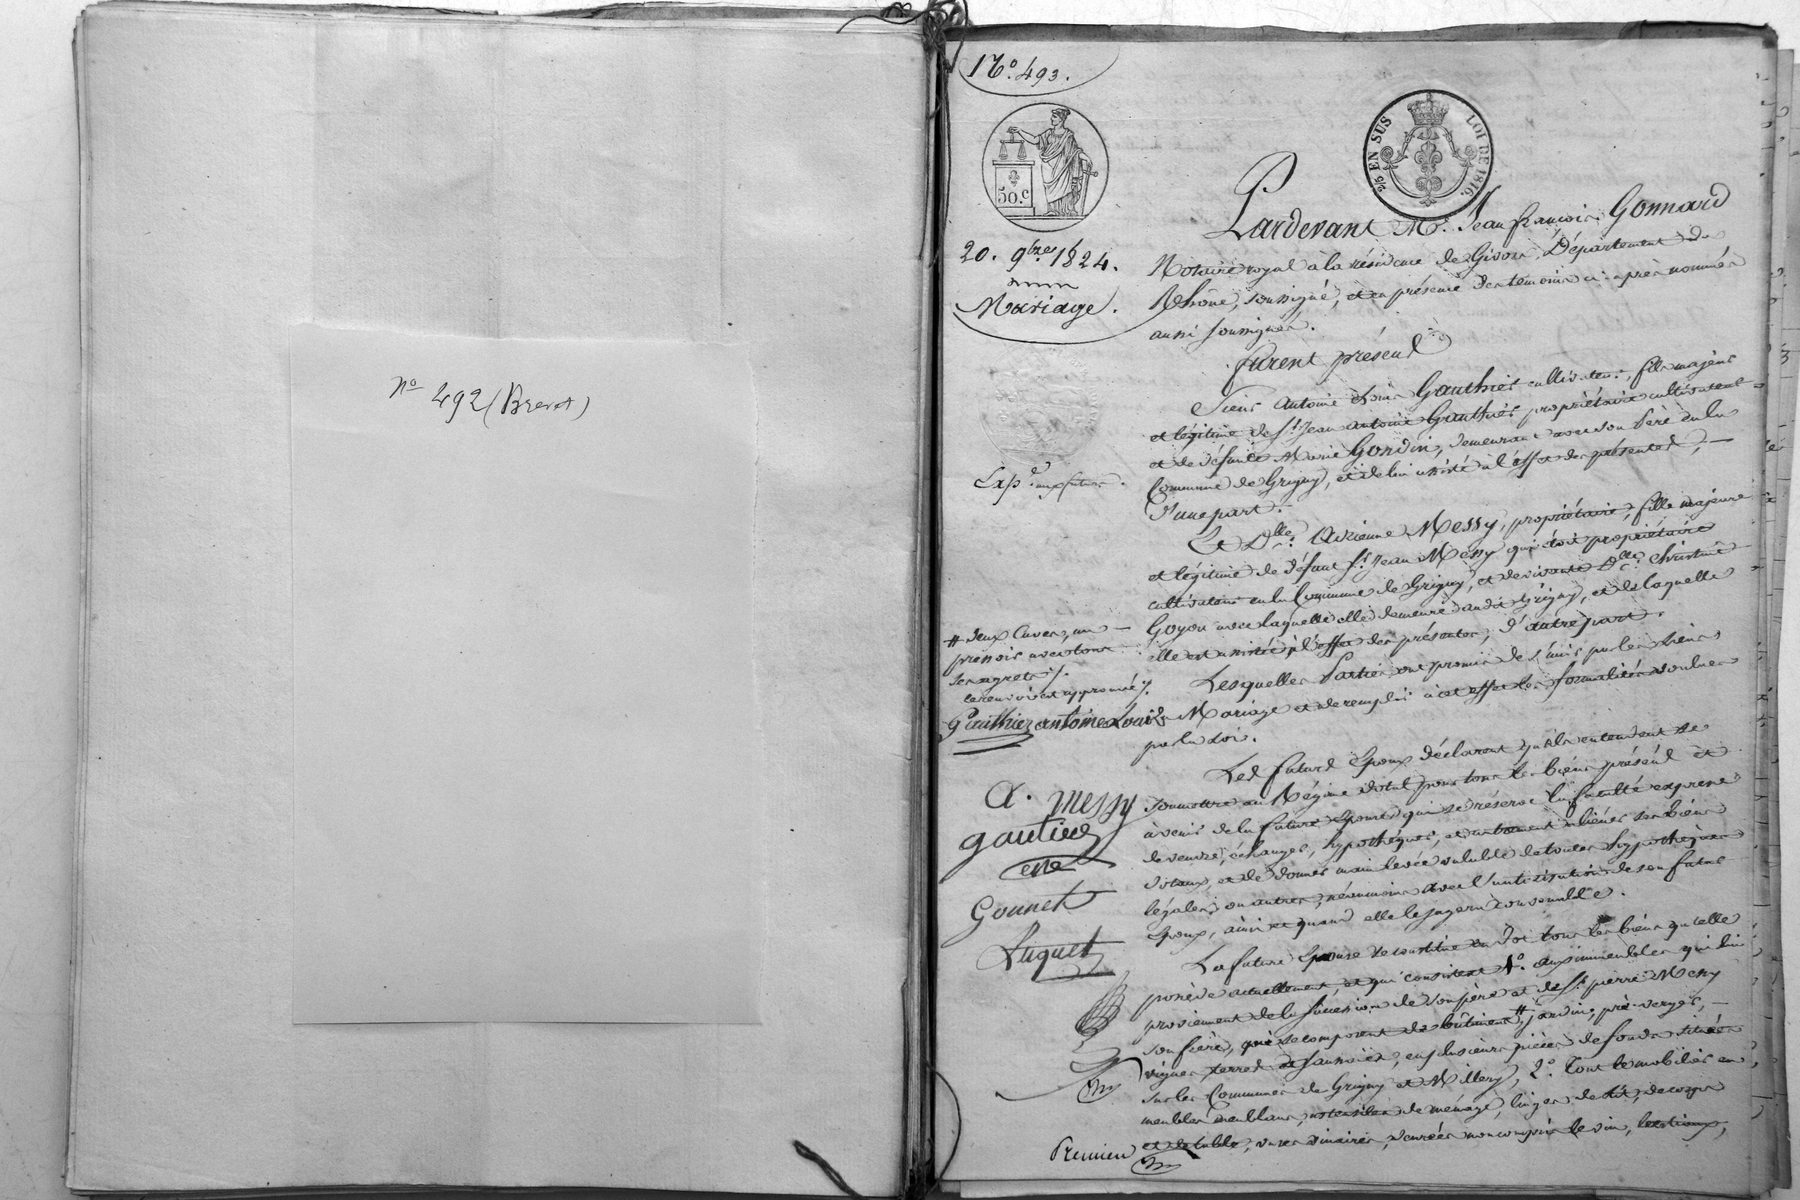 No 492 (Brevet)
No. 493.
50.c
2/5 EN SUS
LOI DE 1816.
20. 9bre 1824.
Mariage.
Pardevant Me. Jean françois Gonnard
Notaire royal à la résidence de Givors, Département du
Rhône, soussigné, et en présence des temoins ci-après nommés
aussi soussignés.
furent présent
Sieur Antoine Louis Gauthier cultivateur, fils majeur
et légitime de Sr. Jean Antoine Gauthier propriétaire cultivateur
et de défunte Marie Gordin, demeurant avec son père en la
Commune de Grigny, et de lui assisté à l'effet des présentes,
D'une part.
Et Dlle. Adrienne Messy, propriétaire, fille majeure
et légitime de défunt Sr. Jean Messy qui étoit propriétaire
cultivateur en la Commune de Grigny, et de vivante Dlle. Christine
Goyon avec laquelle elle demeure audit Grigny, et de laquelle
elle est assistée à l'effet des présentes, D'autre part.
Lesquelles Parties ont promis de s'unir par les liens
Mariage et de remplir à cet effet les formalités voulues
par la Loi.
Les futurs Epoux déclarent qu'ils entendent se
soumettre au Régime dotal pour tous les biens présens et
à venir de la future Epouse qui se réserve la faculté expresse
de vendre, échanger, hypothéquer, et autrement aliéner ses biens
dotaux, et de donner main levée valable de toutes hypothèques
légales ou autres, néanmoins avec l'autorisation de son futur
Epoux, ainsi et quand elle le jugera convenable.
La future Epouse se constitue en Dot tous les biens qu'elle
possède actuellement, et qui consistent 1o. aux immeubles qui lui
proviennent de la succession de son père et de Sr. pierre Messy
son frère, qui se composent de bâtiment # jardin, pré-verger,
vignes terres et saussées, en plusieurs pièces de fonds situées
sur les Communes de Grigny et Millery, 2o. Tout le mobilier en
meubles meublans, ustensiles de ménage, linges de lit, de corps
et de table, vases vinaires, denrées non compris le vin, bestiaux,
Expé. aux futurs.
# deux Cuves, un
pressoir avec tous
ses agrets /.
ce renvoi est approuvé /.
Gauthier antoine Louis
A. messy
gautier
Gounet
Luquet
Premier